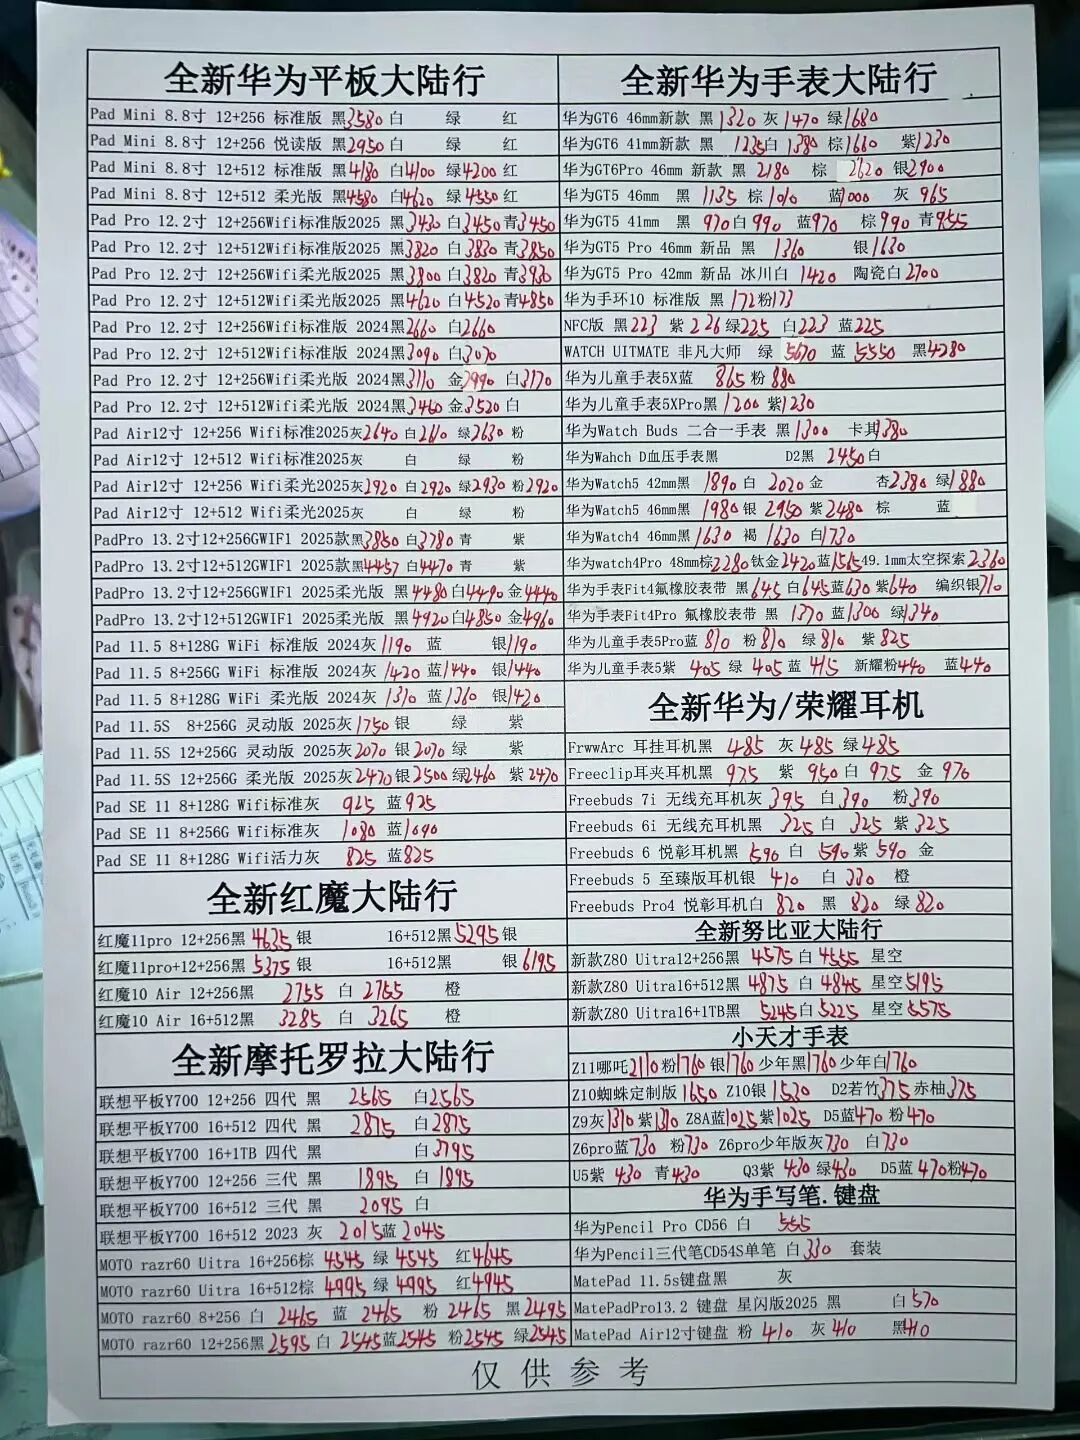 全新华为平板大陆行
Pad Mini 8.8寸 12+256 标准版 黑3580 白 绿 红
Pad Mini 8.8寸 12+256 悦读版 黑2950 白 绿 红
Pad Mini 8.8寸 12+512 标准版 黑4180 白4100 绿4200 红
Pad Mini 8.8寸 12+512 柔光版 黑4580 白4620 绿4550 红
Pad Pro 12.2寸 12+256Wifi标准版2025 黑3430 白3450 青3450
Pad Pro 12.2寸 12+512Wifi标准版2025 黑3820 白3830 青3850
Pad Pro 12.2寸 12+256Wifi柔光版2025 黑3800 白3820 青3930
Pad Pro 12.2寸 12+512Wifi柔光版2025 黑4620 白4520 青4850
Pad Pro 12.2寸 12+256Wifi标准版 2024黑2660 白2660
Pad Pro 12.2寸 12+512Wifi标准版 2024黑3090 白3070
Pad Pro 12.2寸 12+256Wifi柔光版 2024黑3110 金2990 白3170
Pad Pro 12.2寸 12+512Wifi柔光版 2024黑3460 金3520 白
Pad Air12寸 12+256 Wifi标准2025灰2640 白2610 绿2630 粉
Pad Air12寸 12+512 Wifi标准2025灰 白 绿 粉
Pad Air12寸 12+256 Wifi柔光2025灰2920 白2920 绿2930 粉2920
Pad Air12寸 12+512 Wifi柔光2025灰 白 绿 粉
PadPro 13.2寸12+256GWIF1 2025款黑3850 白3780 青 紫
PadPro 13.2寸12+512GWIF1 2025款黑4457 白4470 青 紫
PadPro 13.2寸12+256GWIF1 2025柔光版 黑4480 白4490 金4440
PadPro 13.2寸12+512GWIF1 2025柔光版 黑4920 白4850 金4960
Pad 11.5 8+128G WiFi 标准版 2024灰1190 蓝 银1190
Pad 11.5 8+256G WiFi 标准版 2024灰1420 蓝1440 银1440
Pad 11.5 8+128G WiFi 柔光版 2024灰1310 蓝1360 银1420
Pad 11.5S 8+256G 灵动版 2025灰1750 银 绿 紫
Pad 11.5S 12+256G 灵动版 2025灰2070 银2070 绿 紫
Pad 11.5S 12+256G 柔光版 2025灰2470 银2500 绿2460 紫2470
Pad SE 11 8+128G Wifi标准灰 925 蓝925
Pad SE 11 8+256G Wifi标准灰 1080 蓝1090
Pad SE 11 8+128G Wifi活力灰 825 蓝825
全新红魔大陆行
红魔11pro 12+256黑 4635 银 16+512黑5295 银
红魔11pro+12+256黑 5375 银 16+512黑 银 6195
红魔10 Air 12+256黑 2755 白 2765 橙
红魔10 Air 16+512黑 3285 白 3265 橙
全新摩托罗拉大陆行
联想平板Y700 12+256 四代 黑 2565 白2565
联想平板Y700 16+512 四代 黑 2875 白2875
联想平板Y700 16+1TB 四代 黑 白3795
联想平板Y700 12+256 三代 黑 1895 白 1895
联想平板Y700 16+512 三代 黑 2095 白
联想平板Y700 16+512 2023 灰 2015 蓝 2045
MOTO razr60 Uitra 16+256棕 4545 绿 4545 红4645
MOTO razr60 Uitra 16+512棕 4995 绿 4995 红4945
MOTO razr60 8+256 白 2465 蓝 2465 粉 2465 黑2495
MOTO razr60 12+256黑2595 白 2545 蓝2545 粉2545 绿2545
全新华为手表大陆行
华为GT6 46mm新款 黑 1320 灰 1470 绿1680
华为GT6 41mm新款 黑 1235 白 1380 棕1660 紫1230
华为GT6Pro 46mm 新款 黑 2180 棕 2620 银2900
华为GT5 46mm 黑 1135 棕 1010 蓝1000 灰 965
华为GT5 41mm 黑 970 白 990 蓝970 棕990 青955
华为GT5 Pro 46mm 新品 黑 1360 银1630
华为GT5 Pro 42mm 新品 冰川白 1420 陶瓷白2700
华为手环10 标准版 黑 172 粉173
NFC版 黑223 紫 226 绿225 白223 蓝225
WATCH UITMATE 非凡大师 绿 5670 蓝 5550 黑4280
华为儿童手表5X蓝 865 粉 880
华为儿童手表5XPro黑 1200 紫1230
华为Watch Buds 二合一手表 黑 1300 卡其1380
华为Wahch D血压手表黑 D2黑 2450 白
华为Watch5 42mm黑 1890 白 2020 金 杏2380 绿1880
华为Watch5 46mm黑 1980 银 2950 紫2480 棕 蓝
华为Watch4 46mm黑1630 褐 1630 白1730
华为watch4Pro 48mm棕2280 钛金2420 蓝1565 49.1mm太空探索2360
华为手表Fit4氟橡胶表带 黑645 白645 蓝630 紫640 编织银710
华为手表Fit4Pro 氟橡胶表带 黑 1370 蓝1300 绿1340
华为儿童手表5Pro蓝 810 粉 810 绿 810 紫 825
华为儿童手表5紫 405 绿 405 蓝 415 新耀粉440 蓝440
全新华为/荣耀耳机
FrwwArc 耳挂耳机黑 485 灰 485 绿485
Freeclip耳夹耳机黑 975 紫 950 白 975 金 970
Freebuds 7i 无线充耳机灰 395 白 390 粉390
Freebuds 6i 无线充耳机黑 325 白 325 紫 325
Freebuds 6 悦彰耳机黑 590 白 590 紫 590 金
Freebuds 5 至臻版耳机银 410 白 330 橙
Freebuds Pro4 悦彰耳机白 820 黑 820 绿 820
全新努比亚大陆行
新款Z80 Uitra12+256黑 4575 白 4555 星空
新款Z80 Uitra16+512黑 4875 白 4845 星空5195
新款Z80 Uitra16+1TB黑 5245 白5225 星空5575
小天才手表
Z11哪吒2110 粉1760 银1760 少年黑1760 少年白1760
Z10蜘蛛定制版 1650 Z10银 1520 D2若竹375 赤柚 375
Z9灰1310 紫1310 Z8A蓝1025 紫1025 D5蓝470 粉470
Z6pro蓝730 粉730 Z6pro少年版灰730 白730
U5紫 430 青430 Q3紫 430 绿430 D5蓝 470 粉470
华为手写笔.键盘
华为Pencil Pro CD56 白 555
华为Pencil三代笔CD54S单笔 白330 套装
MatePad 11.5s键盘黑 灰
MatePadPro13.2 键盘 星闪版2025 黑 白570
MatePad Air12寸键盘 粉 410 灰 410 黑410
仅供参考